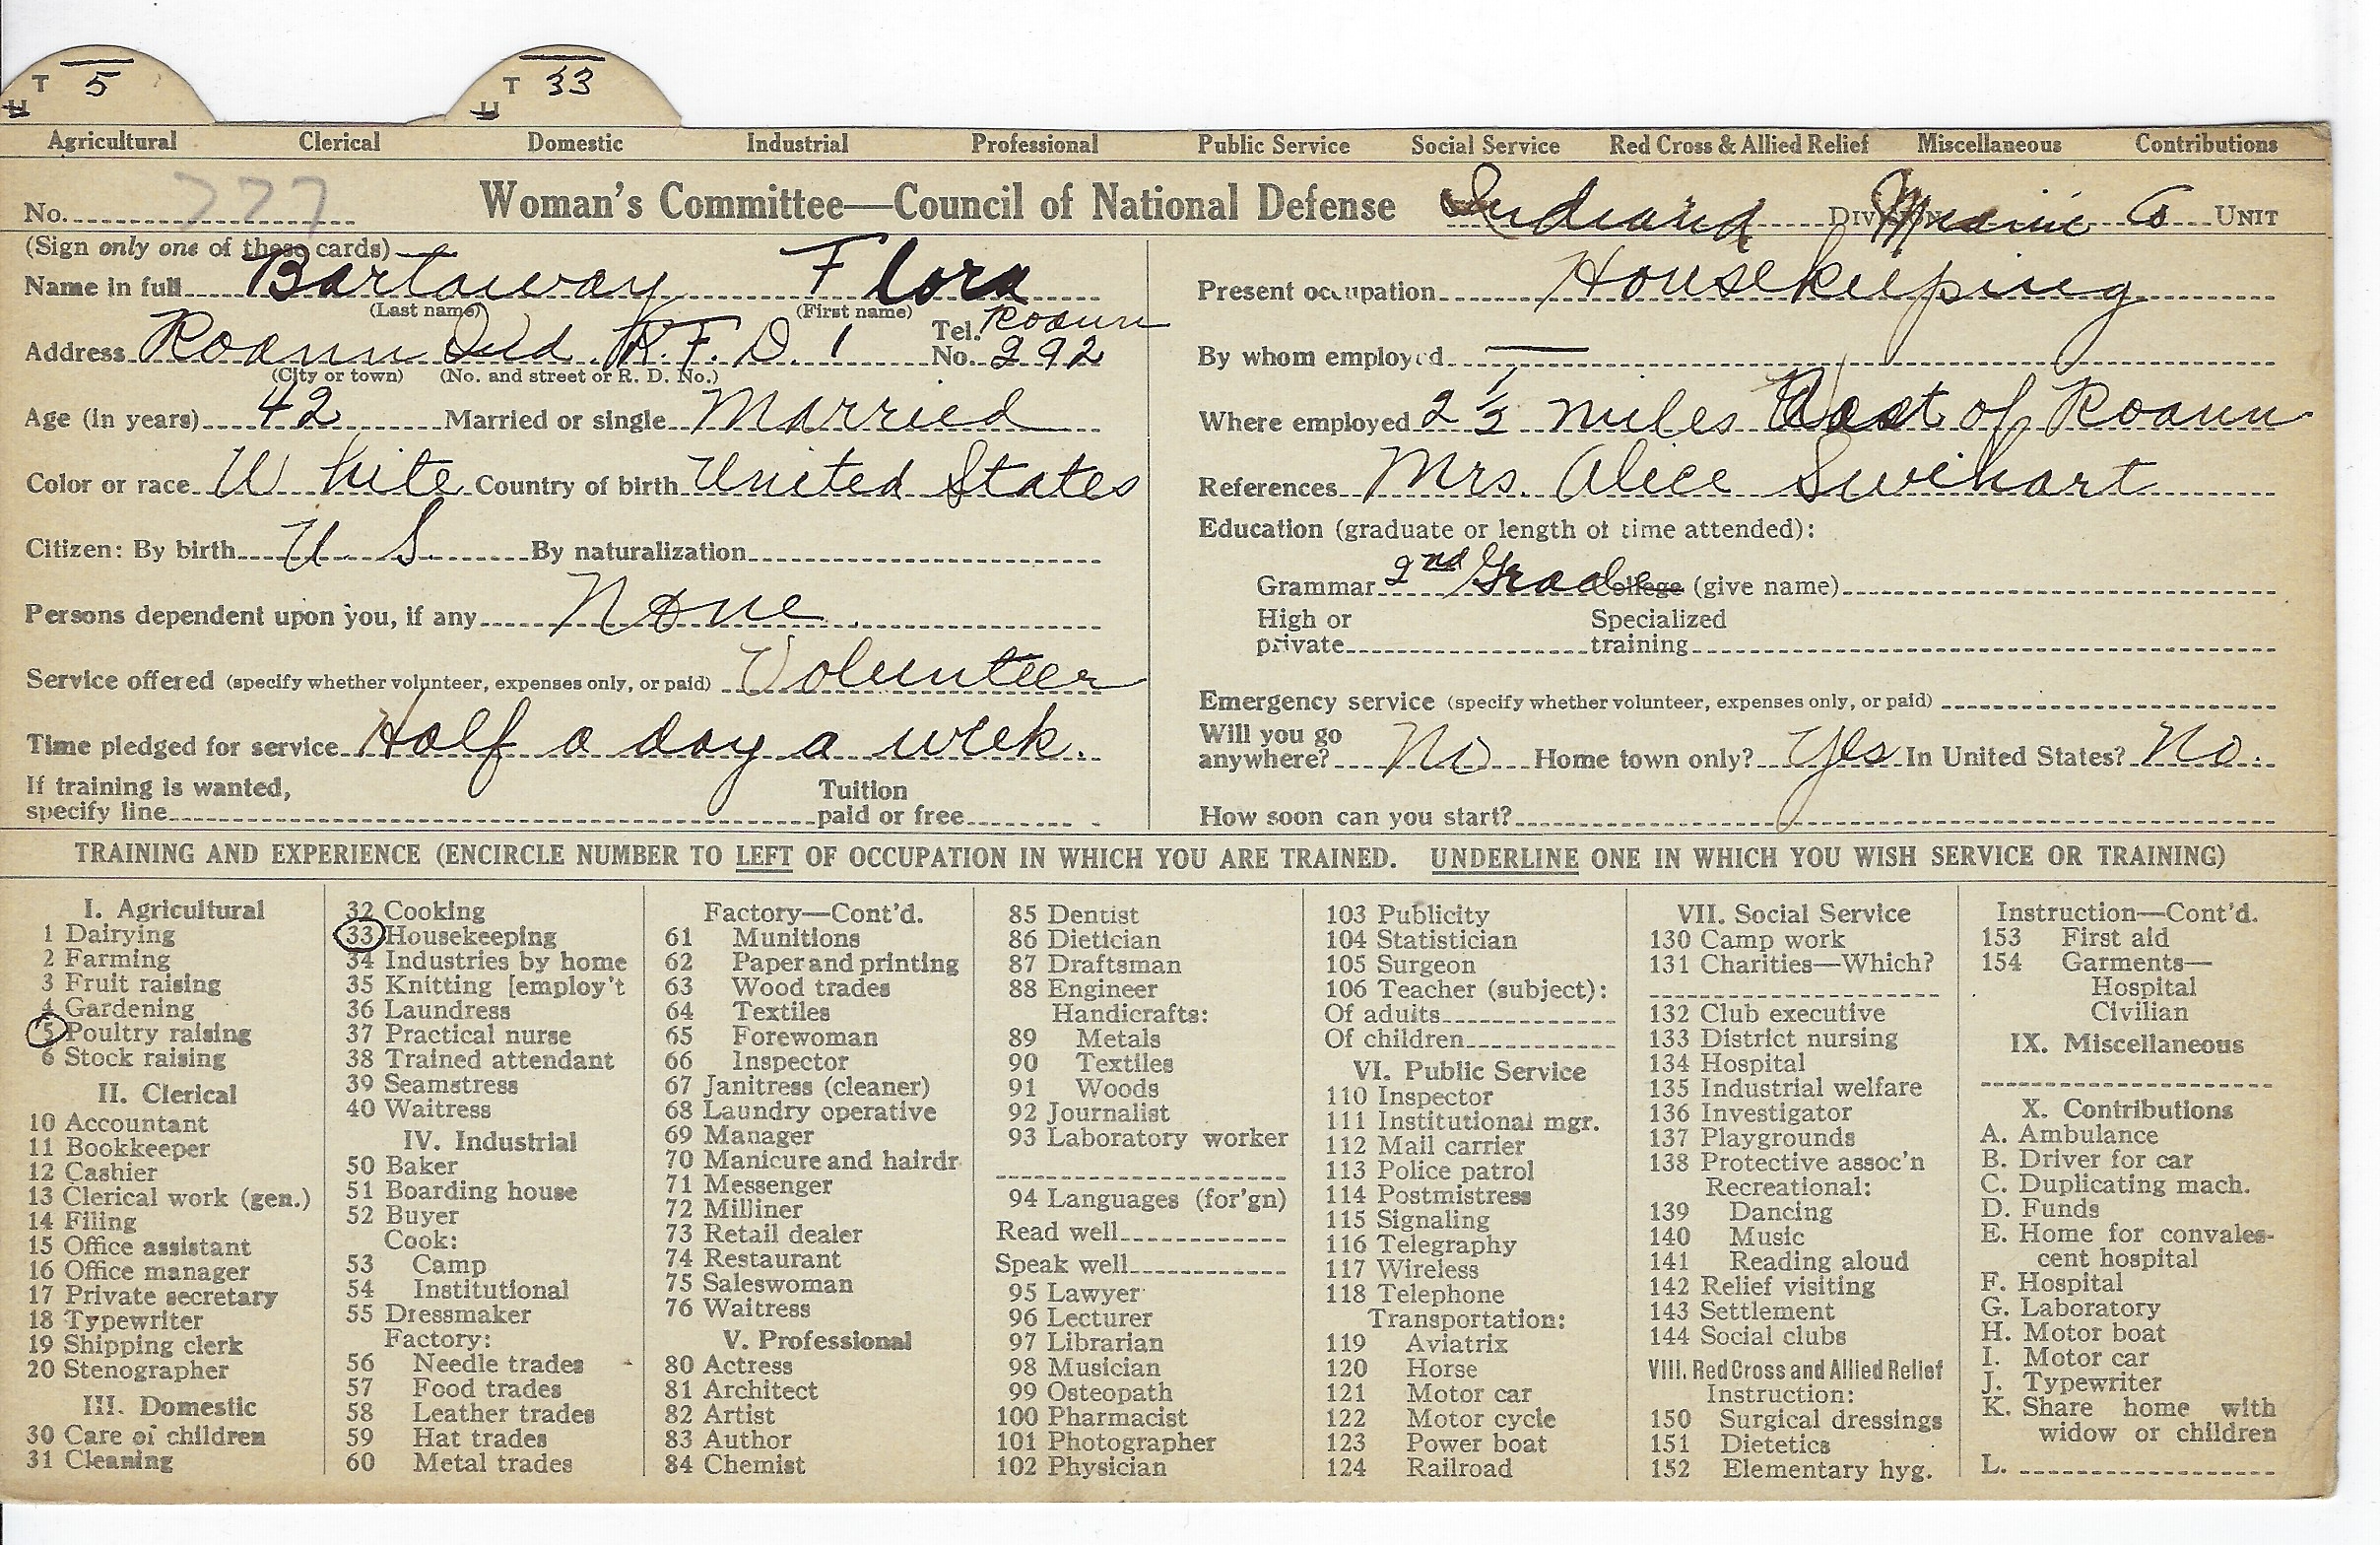 T 5 T 33
U U
Agricultural Clerical Domestic Industrial Professional Public Service Social Service Red Cross & Allied Relief Miscellaneous Contributions
No. 777 Woman's Committee—Council of National Defense Indiana Division Miami Co Unit
(Sign only one of these cards)
Name in full Bartaway Flora
(Last name) (First name)
Address Roann Ind. R.F.D. 1 Tel. No. Roann 292
(City or town) (No. and street or R. D. No.)
Age (in years) 42 Married or single Married
Color or race White Country of birth United States
Citizen: By birth U S. By naturalization
Persons dependent upon you, if any None
Service offered (specify whether volunteer, expenses only, or paid) Volunteer
Time pledged for service Half a day a week.
If training is wanted, specify line Tuition paid or free
Present occupation Housekeeping
By whom employed —
Where employed 2 1/2 miles of Roann
References Mrs. Alice Swihart
Education (graduate or length of time attended):
Grammar 2nd Grade College (give name)
High or private Specialized training
Emergency service (specify whether volunteer, expenses only, or paid)
Will you go anywhere? No Home town only? Yes In United States? No.
How soon can you start?
TRAINING AND EXPERIENCE (ENCIRCLE NUMBER TO LEFT OF OCCUPATION IN WHICH YOU ARE TRAINED. UNDERLINE ONE IN WHICH YOU WISH SERVICE OR TRAINING)
I. Agricultural
1 Dairying
2 Farming
3 Fruit raising
4 Gardening
5 Poultry raising
6 Stock raising
II. Clerical
10 Accountant
11 Bookkeeper
12 Cashier
13 Clerical work (gen.)
14 Filing
15 Office assistant
16 Office manager
17 Private secretary
18 Typewriter
19 Shipping clerk
20 Stenographer
III. Domestic
30 Care of children
31 Cleaning
32 Cooking
33 Housekeeping
34 Industries by home
35 Knitting [employ't
36 Laundress
37 Practical nurse
38 Trained attendant
39 Seamstress
40 Waitress
IV. Industrial
50 Baker
51 Boarding house
52 Buyer
Cook:
53 Camp
54 Institutional
55 Dressmaker
Factory:
56 Needle trades
57 Food trades
58 Leather trades
59 Hat trades
60 Metal trades
Factory—Cont'd.
61 Munitions
62 Paper and printing
63 Wood trades
64 Textiles
65 Forewoman
66 Inspector
67 Janitress (cleaner)
68 Laundry operative
69 Manager
70 Manicure and hairdr
71 Messenger
72 Milliner
73 Retail dealer
74 Restaurant
75 Saleswoman
76 Waitress
V. Professional
80 Actress
81 Architect
82 Artist
83 Author
84 Chemist
85 Dentist
86 Dietician
87 Draftsman
88 Engineer
Handicrafts:
89 Metals
90 Textiles
91 Woods
92 Journalist
93 Laboratory worker
94 Languages (for'gn)
Read well
Speak well
95 Lawyer
96 Lecturer
97 Librarian
98 Musician
99 Osteopath
100 Pharmacist
101 Photographer
102 Physician
103 Publicity
104 Statistician
105 Surgeon
106 Teacher (subject):
Of adults
Of children
VI. Public Service
110 Inspector
111 Institutional mgr.
112 Mail carrier
113 Police patrol
114 Postmistress
115 Signaling
116 Telegraphy
117 Wireless
118 Telephone
Transportation:
119 Aviatrix
120 Horse
121 Motor car
122 Motor cycle
123 Power boat
124 Railroad
VII. Social Service
130 Camp work
131 Charities—Which?
132 Club executive
133 District nursing
134 Hospital
135 Industrial welfare
136 Investigator
137 Playgrounds
138 Protective assoc'n
Recreational:
139 Dancing
140 Music
141 Reading aloud
142 Relief visiting
143 Settlement
144 Social clubs
VIII. Red Cross and Allied Relief
Instruction:
150 Surgical dressings
151 Dietetics
152 Elementary hyg.
Instruction—Cont'd.
153 First aid
154 Garments—
Hospital
Civilian
IX. Miscellaneous
X. Contributions
A. Ambulance
B. Driver for car
C. Duplicating mach.
D. Funds
E. Home for convales-
cent hospital
F. Hospital
G. Laboratory
H. Motor boat
I. Motor car
J. Typewriter
K. Share home with
widow or children
L.